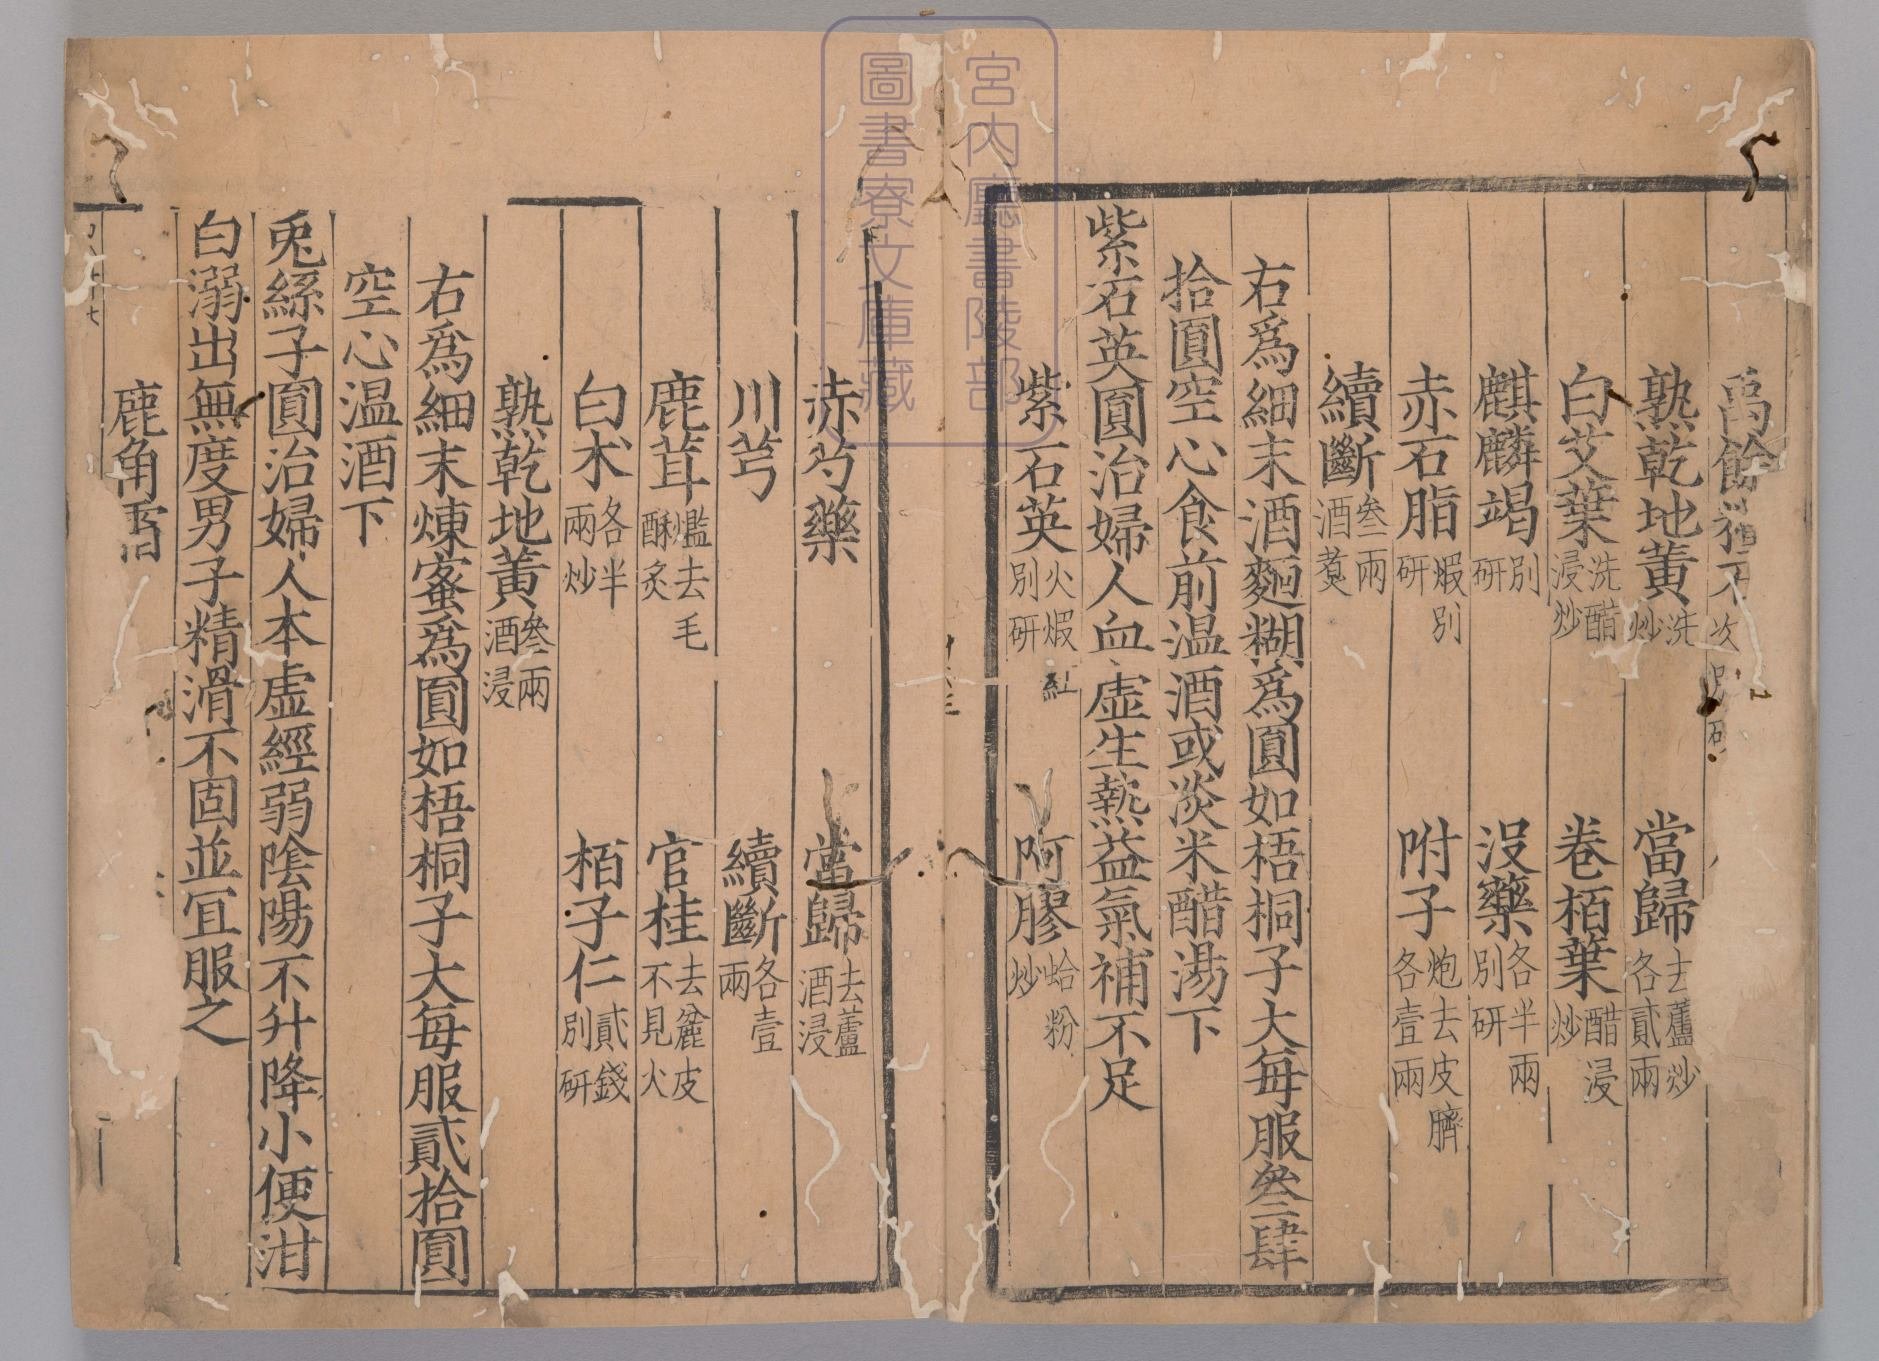 禹餘
熟乾地黄洗炒 當歸去蘆炒各貳兩
白艾葉洗醋浸炒 卷栢葉醋浸炒
麒麟竭別研 没藥各半兩別研
赤石脂煅別研 附子炮去皮臍各壹兩
續斷叁兩酒煮
右爲細末酒麵糊爲圓如梧桐子大每服叁肆
拾圓空心食前温酒或淡米醋湯下
紫石英圓治婦人血虚生熱益氣補不足
紫石英火煅紅別研 阿膠蛤粉炒
赤芍藥 當歸去蘆酒浸
川芎 續斷各壹兩
鹿茸爁去毛酥炙 官桂去麄皮不見火
白术各半兩炒 栢子仁貳錢別研
熟乾地黄叁兩酒浸
右爲細末煉蜜爲圓如梧桐子大每服貳拾圓
空心温酒下
兎絲子圓治婦人本虚經弱陰陽不升降小便泔
白溺出無度男子精滑不固並宜服之
鹿角霜
宮内廳書陵部
圖書寮文庫藏